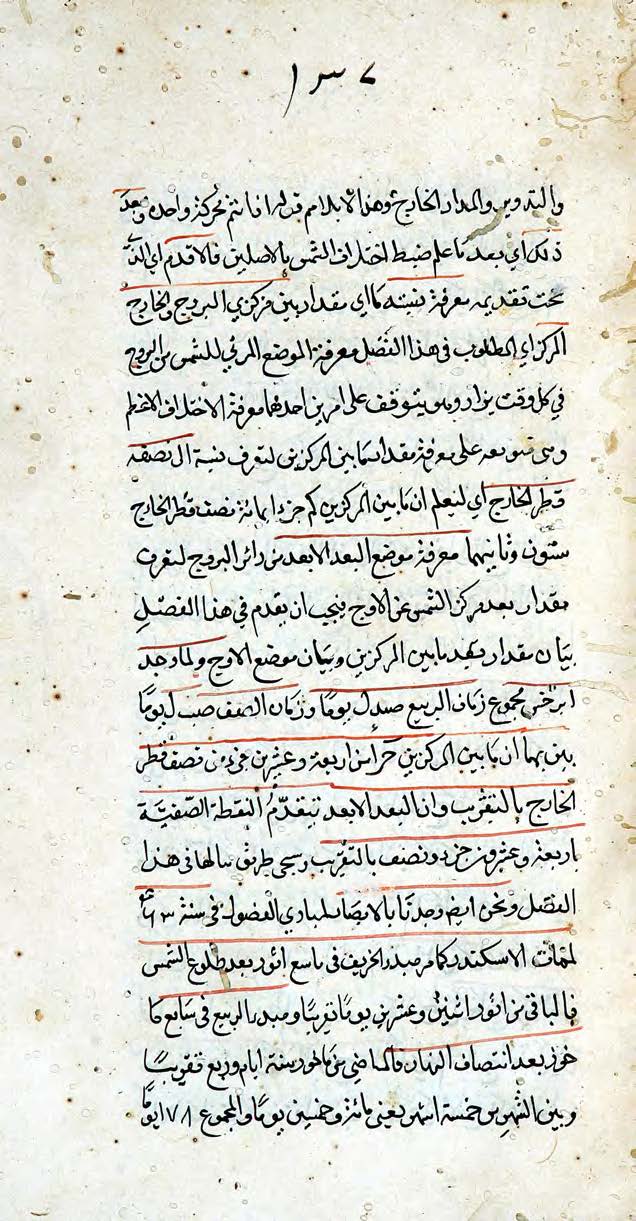 ١٣٧
والتدوير والمدار الخارج وهذا لا يلايم قوله انما تتم بحركة واحدة وبعد
ذلك اي بعد ما علم ضبط اختلاف الشمس بالاصلين فالاقدم اي الذي
يجب تقديمه معرفة نسبة ما اي مقدار بين مركزي البروج والخارج
المركز اي المطلوب في هذا الفصل معرفة الموضع المرئي للشمس من البروج
في كل وقت يراد وهو يتوقف على امرين احدهما معرفة الاختلاف الاعظم
على معرفة مقدار ما بين المركزين لتعرف نسبة الى نصف
قطر الخارج اي ليعلم ان ما بين المركزين كم جزء اما نة نصف قطر الخارج
ستون وثانيهما معرفة موضع البعد الابعد من دائر البروج لتعرف
مقدار بعد مركز الشمس عن الاوج فيجب ان يقدم في هذا الفصل
بيان مقدار بعد ما بين المركزين وبيان موضع الاوج ولما وجد
ابرخس مجموع زمان الربيع صد ل يوما وزمان الصيف صب ل يوما
بين بهما ان ما بين المركزين جزء من اربعة وعشرين جزء من نصف قطر
الخارج بالتقريب وان البعد الابعد يتقدم النقطة الصيفية
باربعة وعشرين جزء ونصف بالتقريب وسيجي طريق بيانها في هذا
الفصل ونحن ايضا وجدنا بالارصاد لمبادي الفصول في سنة ٤٦٣
لممات الاسكندر كما مر مبدء الخريف في تاسع اثور بعد طلوع الشمس
فالباقي من اثور اثنين وعشرين يوما تقريبا ومبدء الربيع في سابع ما
خور بعد انتصاف النهار فالماضي من ماخور ستة ايام وربع تقريبا
وبين الشهرين خمسة اشهر يعني مائة وخمسين يوما والمجموع ١٧٨ يوما